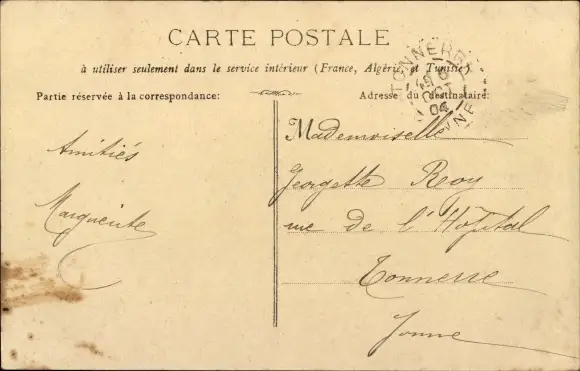 CARTE POSTALE
à utiliser seulement dans le service intérieur (France, Algérie et Tunisie)
Partie réservée à la correspondance:
Adresse du destinataire:
TONNERRE
OCT
04
YONNE
Amitiés
Marguerite
Mademoiselle
Georgette Roy
rue de l'Hôpital
Tonnerre
Yonne